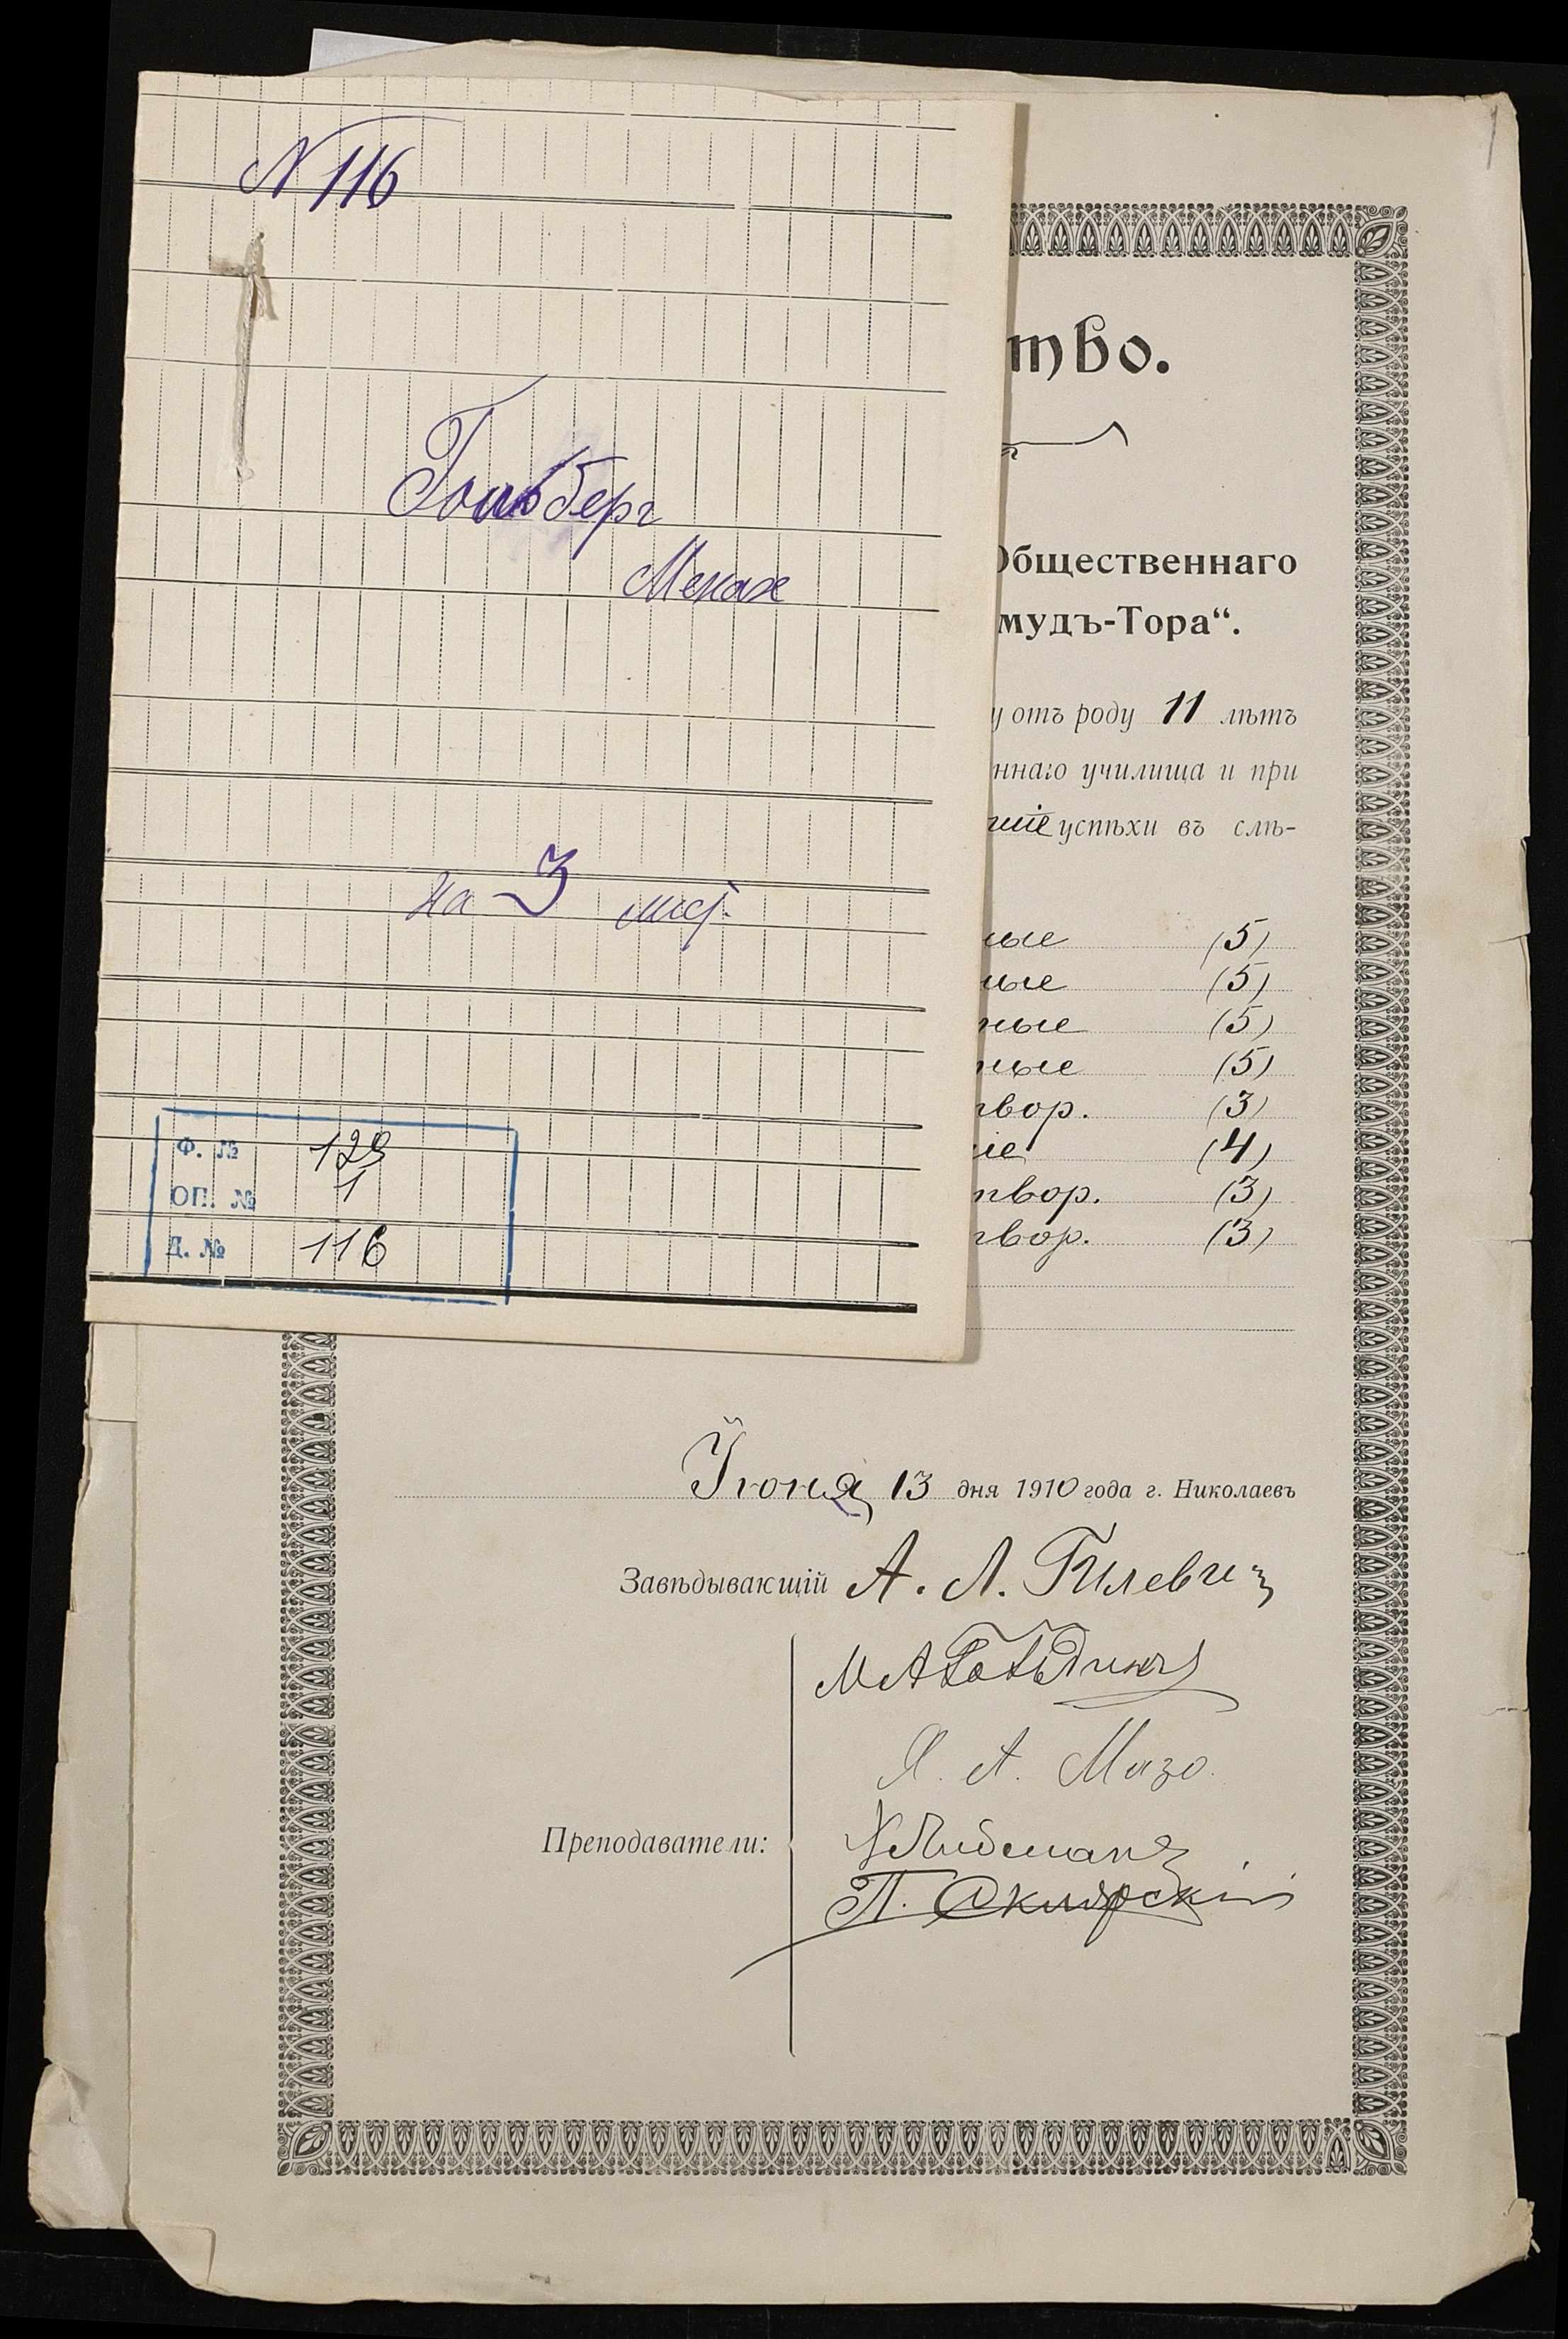 N 116
Гольберг
Менах
на 3 лист.
Ф. № 129
ОП. № 1
Д. № 116
тво.
Общественнаго
мудъ-Тора“.
у отъ роду 11 лѣтъ
ннаго училища и при
шіе успѣхи въ слѣ-
ные (5)
ные (5)
ные (5)
ные (5)
твор. (3)
шіе (4)
твор. (3)
твор. (3)
Іюня 13 дня 1910 года г. Николаевъ
Завѣдывающій А. Л. Гилевич
Я. А. Мазо.
Преподаватели:
П. Склярскій